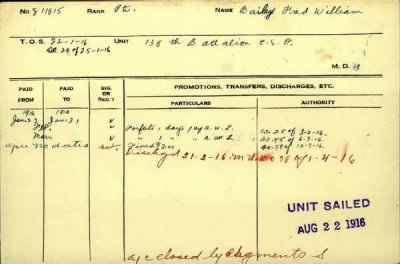 No. 811815 RANK Pte. NAME Bailey Fred William
T.O.S. 22-1-16 UNIT 138th Battalion C.E.F.
D.O. 20 of 25-1-16
M.D. 13
PAID FROM PAID TO SIG. OR REC'T PROMOTIONS, TRANSFERS, DISCHARGES, ETC.
PARTICULARS AUTHORITY
1916 1916
Jan 22 Jan 31 v Forfeits 1 days pay A.W.L. D.O. 28 of 3-2-16.
Feb. v " " " " D.O. 55 of 6-3-16.
Mar. v Fined $2.00 10-3-16.
Apr no dates
Dischg'd 21-2-16 98 of 1-4-16
UNIT SAILED
AUG 22 1916
a/c closed by